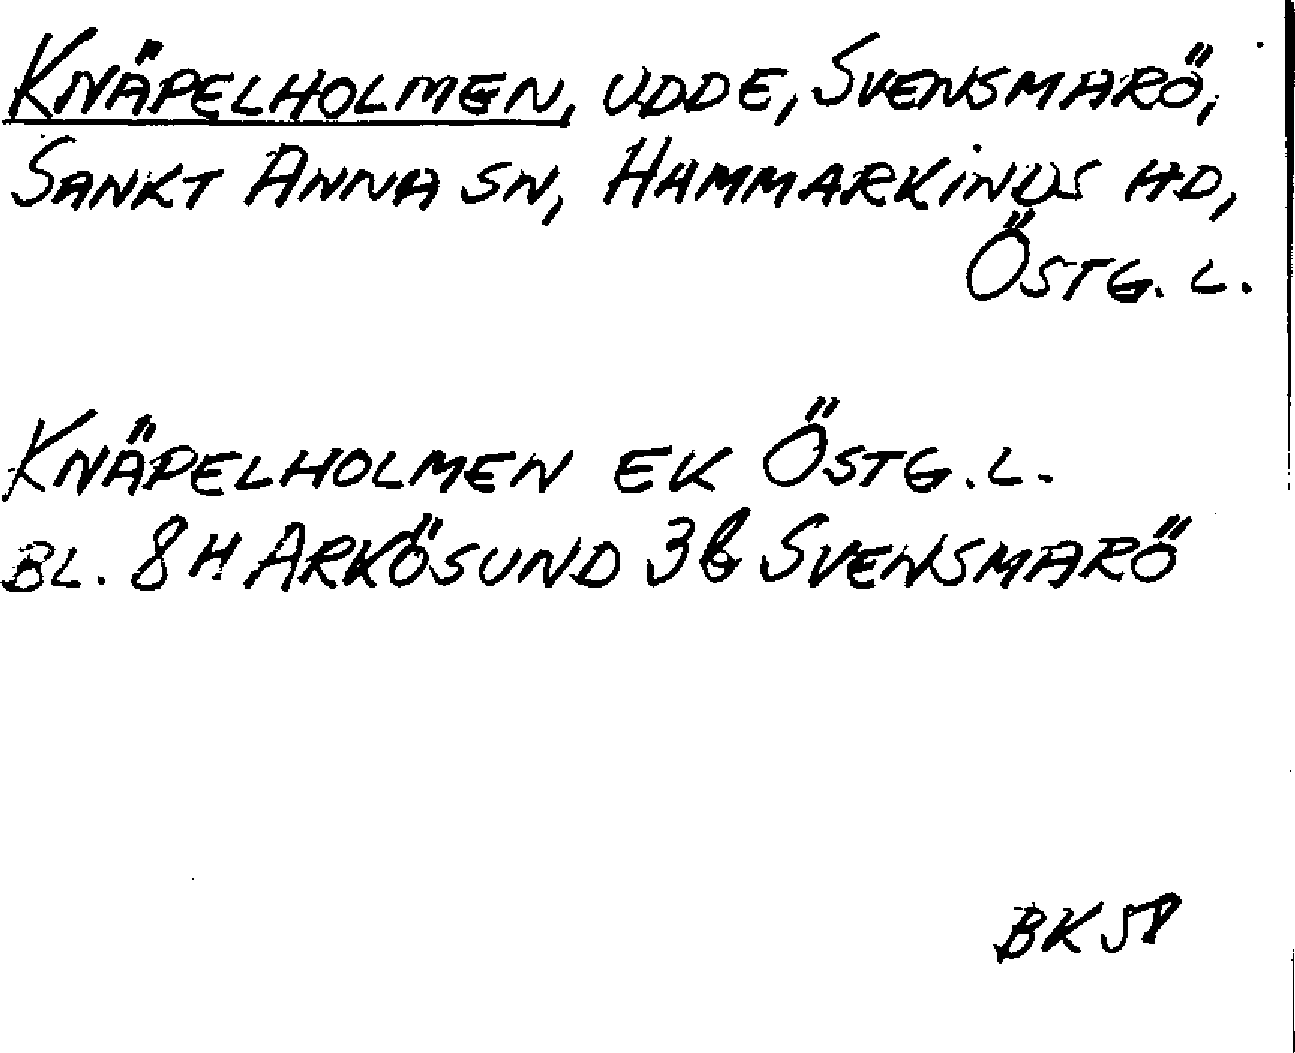 KNÄPELHOLMEN, UDDE, SVENSMARÖ,
SANKT ANNA SN, HAMMARKINDS HD,
ÖSTG. L.
KNÄPELHOLMEN EK ÖSTG. L.
BL. 8H ARKÖSUND 3b SVENSMARÖ
BK